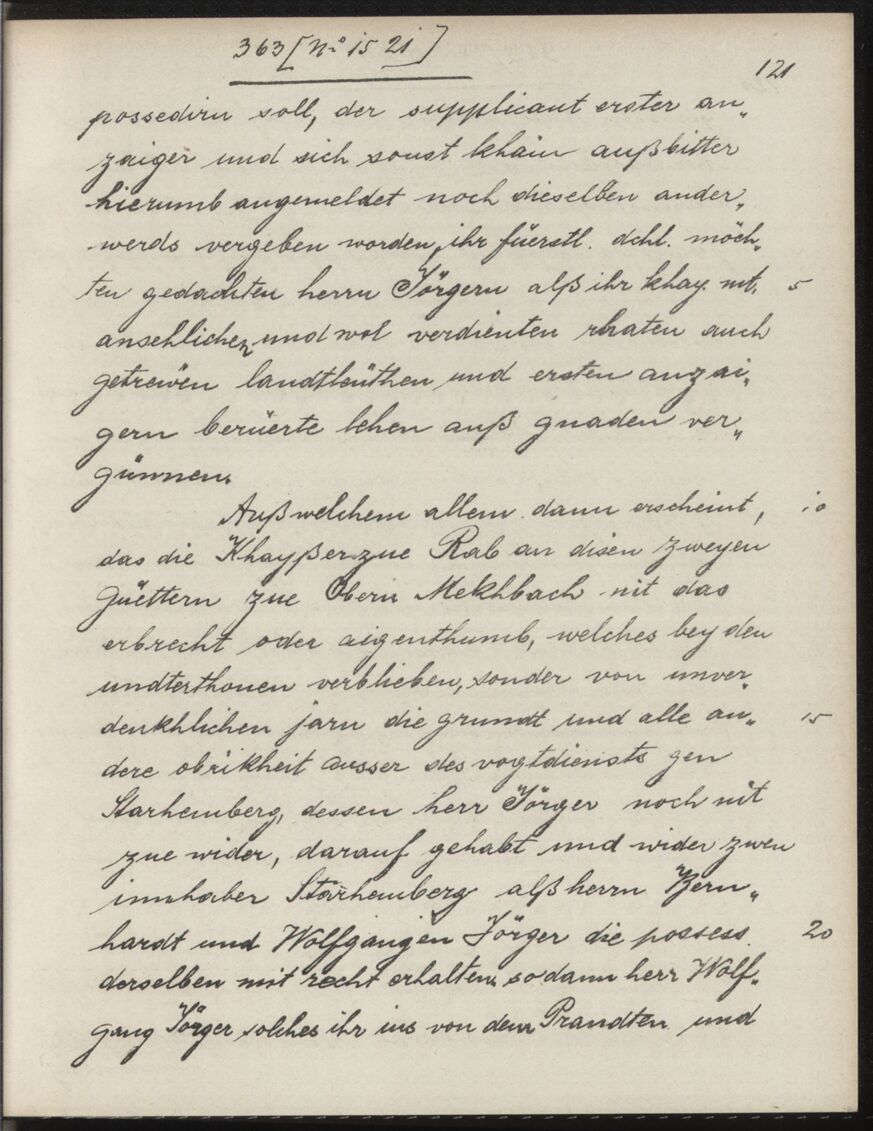 363 [No 1521]
121
possedirn soll, der supplicant erster an„
zaiger und sich sonst khain außbitter
hierumb angemeldet noch dieselben ander„
werds vergeben worden, ihr füerstl. dchl. möch„
ten gedachten herrn Jörgern alß ihr khay. mt. 5
ansehlichen und wol verdienten rhaten auch
getrewen landtleüthen und ersten anzai„
gern berüerte lehen auß gnaden ver„
günnen.
Außwelchem allem dann erscheint, 10
das die Khayßer zue Rab an disen zweyen
güettern zue Obern Mekhbach nit das
erbrecht oder aigenthumb, welches bey den
undterthonen verblieben, sonder von unver„
denkhlichen jarn die grundt und alle an„ 15
dere obrikheit ausser des vogtdiensts gen
Starhemberg, dessen herr Jörger noch nit
zue wider, darauf gehabt und wider zwen
innhaber Starhemberg alß herrn Bern„
hardt und Wolfgangen Jörger die possess. 20
derselben mit recht erhalten, so dann herr Wolf„
gang Jörger solches ihr ius von dem Prandten und